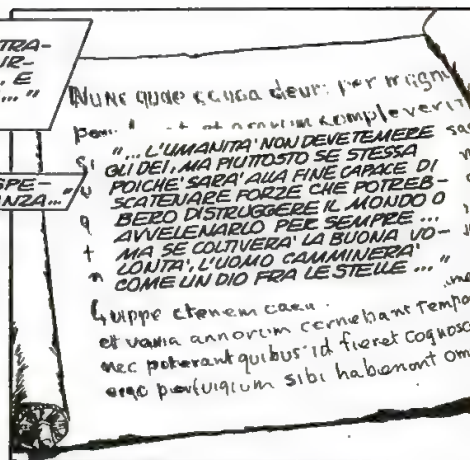 TRA-
UR-
. E
... "
SPE-
NZA..."
NUNC quae causa deum per magn
"... L'UMANITA' NON DEVE TEMERE
GLI DEI, MA PIUTTOSTO SE STESSA
POICHE' SARA' ALLA FINE CAPACE DI
SCATENARE FORZE CHE POTREB-
BERO DISTRUGGERE IL MONDO O
AVVELENARLO PER SEMPRE ...
MA SE COLTIVERA' LA BUONA VO-
LONTA', L'UOMO CAMMINERA'
COME UN DIO FRA LE STELLE ... "
et varia annorum cernebant tempo
nec poterant quibus id fieret cognosc
ergo perfugium sibi habebant om